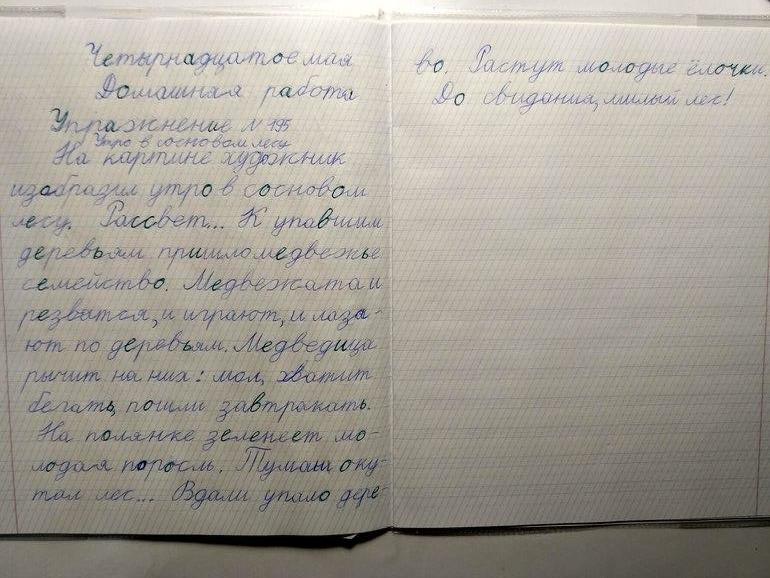 Четырнадцатое мая
Домашняя работа
Упражнение №195
Утро в сосновом лесу
На картине художник
изобразил утро в сосновом
лесу. Рассвет... К упавшим
деревьям пришло медвежье
семейство. Медвежата и
резвятся, и играют, и лаза-
ют по деревьям. Медведица
рычит на них: мол, хватит
бегать, пошли завтракать.
На полянке зеленеет мо-
лодая поросль. Туман оку-
тал лес... Вдали упало дере-
во. Растут молодые ёлочки.
До свидания, милый лес!